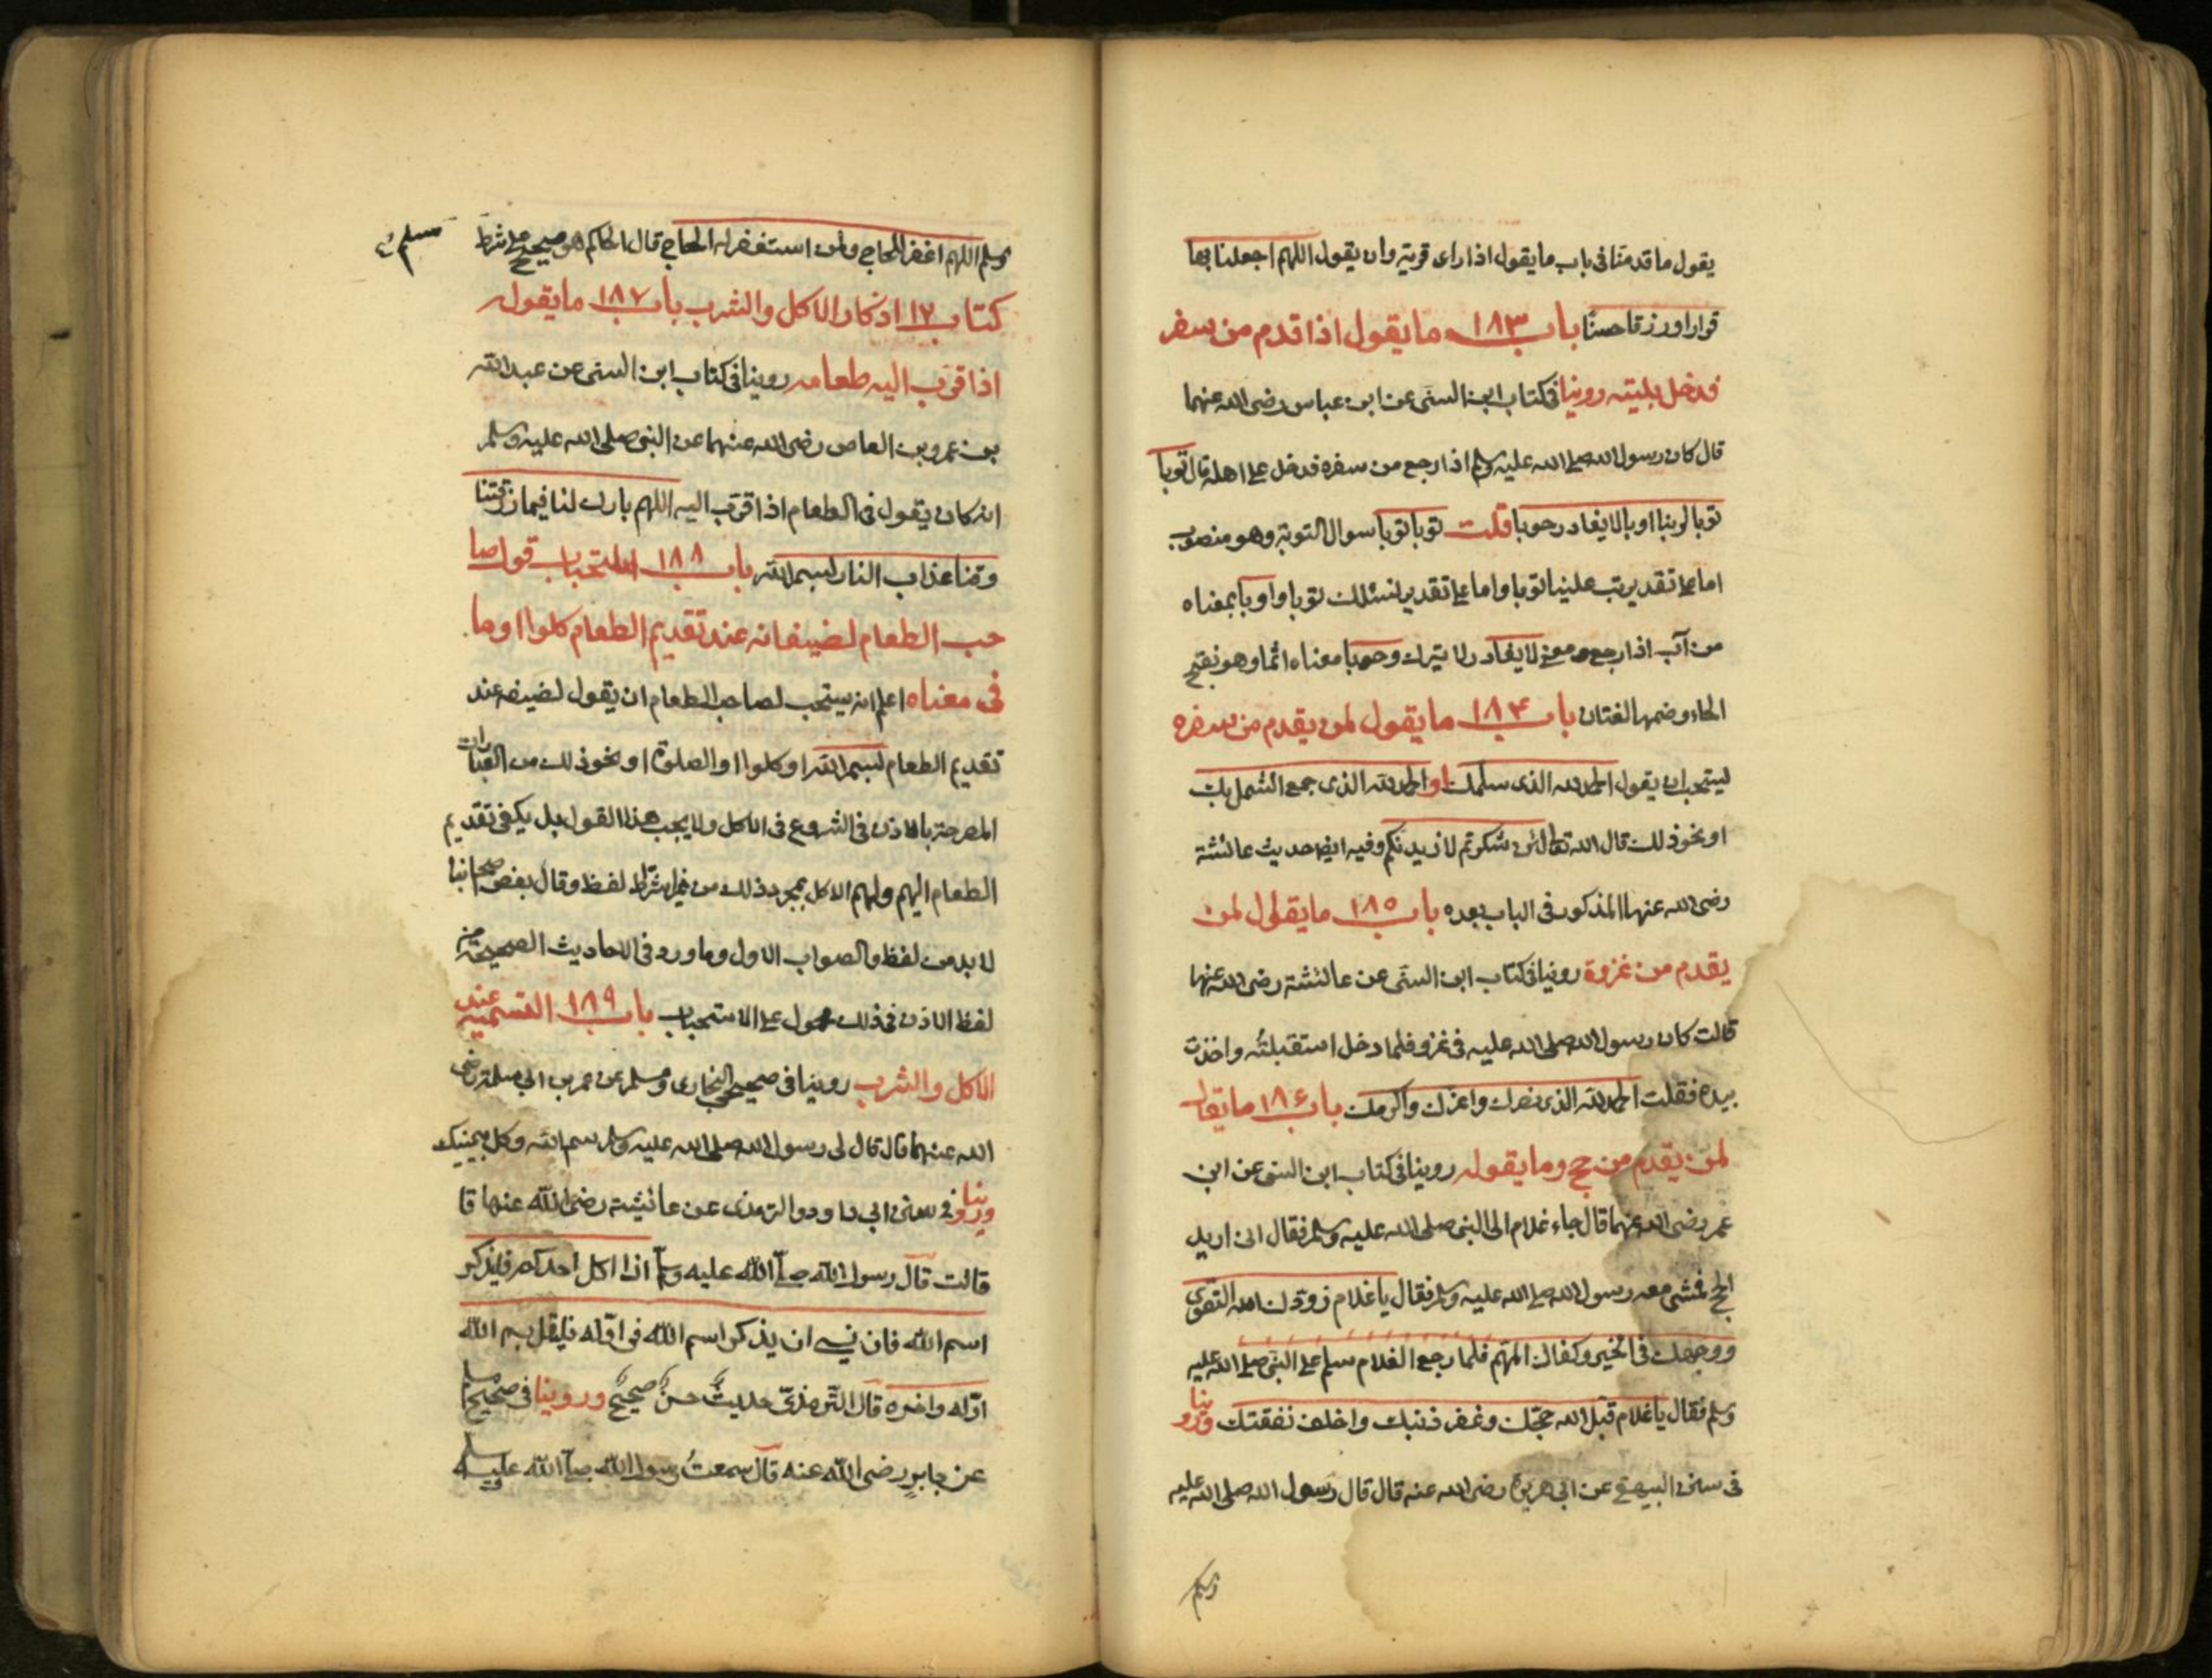 يقول ما قدمنا فى باب ما يقول اذا راى قرية وان يقول اللهم اجعلنا بها
قرارا ورزقا حسنا باب ١٨٣ ما يقول اذا قدم من سفر
فدخل بليته روينا فى كتاب ابن السنى عن ابن عباس رضى الله عنهما
قال كان رسول الله صلى الله عليه وسلم اذا رجع من سفره فدخل على اهله قال توبا
توبا لربنا اوبا لا يغادر حوبا قلت توبا توبا سوال التوبة وهو منصوب
اما على تقدير تب علينا توبا واما على تقدير نسئلك توبا واوبا بمعناه
من آب اذا رجع ومعنى لا يغادر لا يترك وحوبا معناه اثما وهو بفتح
الحاء وضمها لغتان باب ١٨۴ ما يقول لمن يقدم من سفره
يستحب ان يقول الحمد لله الذى سلمك او الحمد لله الذى جمع الشمل بك
او نحو ذلك قال الله تعالى لئن شكرتم لازيدنكم وفيه ايضا حديث عائشة
رضى الله عنها المذكور فى الباب بعده باب ١٨٥ ما يقول لمن
يقدم من غزوة روينا فى كتاب ابن السنى عن عائشة رضى الله عنها
قالت كان رسول الله صلى الله عليه فى غزو فلما دخل استقبلته واخذت
بيده فقلت الحمد لله الذى نصرك واعزك واكرمك باب ١٨۶ ما يقال
لمن يقدم من حج وما يقوله روينا فى كتاب ابن السنى عن ابن
عمر رضى الله عنهما قال جاء غلام الى النبى صلى الله عليه وسلم فقال انى اريد
الحج فمشى معه رسول الله صلى الله عليه وسلم فقال يا غلام زودك الله التقوى
ووجهك فى الخير وكفاك المهم فلما رجع الغلام سلم على النبى صلى الله عليه
وسلم فقال يا غلام قبل الله حجتك وغفر ذنبك واخلف نفقتك وروينا
فى سنن البيهقى عن ابى هريرة رضى الله عنه قال قال رسول الله صلى الله عليه
وسلم
وسلم اللهم اغفر للحاج ولمن استغفر له الحاج قال الحاكم هو صحيح على شرط
مسلم
كتاب ١٧ اذكار الاكل والشرب باب ١٨٧ ما يقول
اذا قرب اليه طعامه روينا فى كتاب ابن السنى عن عبد الله
بن عمرو بن العاص رضى الله عنهما عن النبى صلى الله عليه وسلم
انه كان يقول فى الطعام اذا قرب اليه اللهم بارك لنا فيما رزقتنا
وقنا عذاب النار بسم الله باب ١٨٨ استحباب قول صا
حب الطعام لضيفانه عند تقديم الطعام كلوا او ما
فى معناه اعلم انه يستحب لصاحب الطعام ان يقول لضيفه عند
تقديم الطعام بسم الله او كلوا او الصلوة او نحو ذلك من العبارات
المصرحة بالاذن فى الشروع فى الاكل ولا يجب هذا القول بل يكفى تقديم
الطعام اليهم ولهم الاكل بمجرد ذلك من غير اشتراط لفظ وقال بعض اصحابنا
لا بد من لفظ والصواب الاول وما ورد فى الاحاديث الصحيحة من
لفظ الاذن فى ذلك محمول على الاستحباب باب ١٨٩ التسمية عند
الاكل والشرب روينا فى صحيحى البخارى ومسلم عن عمر بن ابى سلمة رضى
الله عنهما قال قال لى رسول الله صلى الله عليه وسلم سم الله وكل بيمينك
وروينا فى سنن ابى داود والترمذى عن عائشة رضى الله عنها قا
قالت قال رسول الله صلى الله عليه وسلم اذا اكل احدكم فليذكر
اسم الله فان نسى ان يذكر اسم الله فى اوله فليقل بسم الله
اوله واخره قال الترمذى حديث حسن صحيح وروينا فى صحيح مسلم
عن جابر رضى الله عنه قال سمعت رسول الله صلى الله عليه وسلم